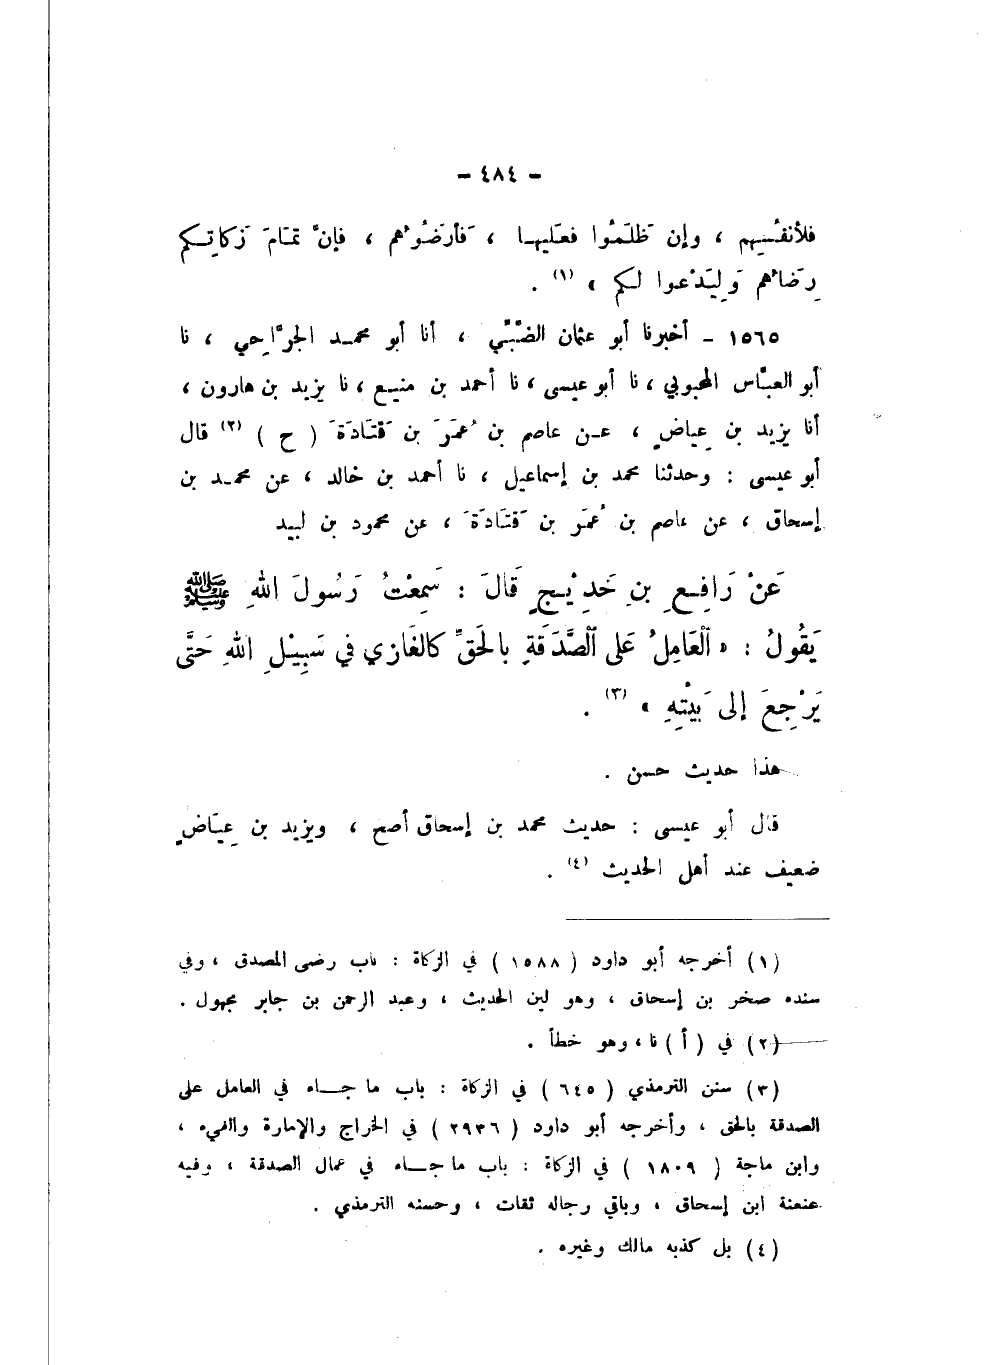 - ٤٨٤ -
فلأنفُسِهم ، وإن ظَلَمُوا فعَليها ، فَأرْضُوْهم ، فإنَّ تمَامَ زَكاتِكم
رِضَاهُم وَلِيَدْعوا لكم » (١) .
١٥٦٥ - أخبرنا أبو عثمان الضَّبِّي ، أنا أبو محمد الجرَّاحِي ، نا
أبو العبَّاس المحبوبي ، نا أبو عيسى ، نا أحمد بن منيع ، نا يزيد بن هارون ،
أنا يزيد بن عِياضٍ ، عن عاصم بن عُمَرَ بن قَتَادَةَ ( ح ) (٢) قال
أبو عيسى : وحدثنا محمد بن إسماعيل ، نا أحمد بن خالد ، عن محمد بن
إسحاق ، عن عاصم بن عُمَر بن قَتَادَةَ ، عن محمود بن لبيد
عَنْ رَافِعِ بنِ خَدِيْجٍ قَالَ : سَمِعْتُ رَسُولَ اللهِ ﷺ
يَقُولُ : « اَلْعَامِلُ عَلى الصَّدَقَةِ بِالحَقِّ كالغَازي في سَبِيْلِ اللهِ حَتَّى
يَرْجِعَ إلى بَيْتِهِ » (٣) .
هذا حديث حسن .
قال أبو عيسى : حديث محمد بن إسحاق أصح ، ويزيد بن عِيَاضٍ
ضعيف عند أهل الحديث (٤) .
(١) أخرجه أبو داود ( ١٥٨٨ ) في الزكاة : باب رضى المصدق ، وفي
سنده صخر بن إسحاق ، وهو لين الحديث ، وعبد الرحمن بن جابر مجهول .
(٢) في ( أ ) نا ، وهو خطأ .
(٣) سنن الترمذي ( ٦٤٥ ) في الزكاة : باب ما جاء في العامل على
الصدقة بالحق ، وأخرجه أبو داود ( ٢٩٣٦ ) في الخراج والإمارة والفيء ،
وابن ماجة ( ١٨٠٩ ) في الزكاة : باب ما جاء في عمال الصدقة ، وفيه
عنعنة ابن إسحاق ، وباقي رجاله ثقات ، وحسنه الترمذي .
(٤) بل كذبه مالك وغيره .